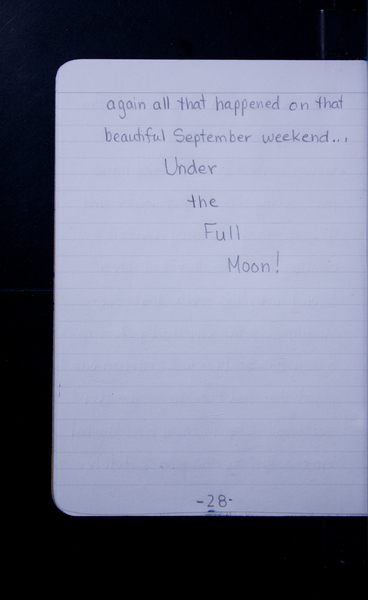 again all that happened on that
beautiful September weekend...
Under
the
Full
Moon!
-28-